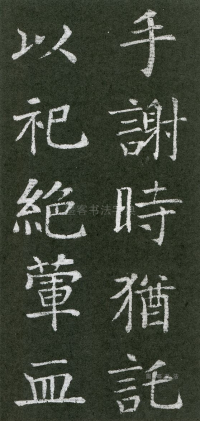 手謝時猶託
以祀絕葷血